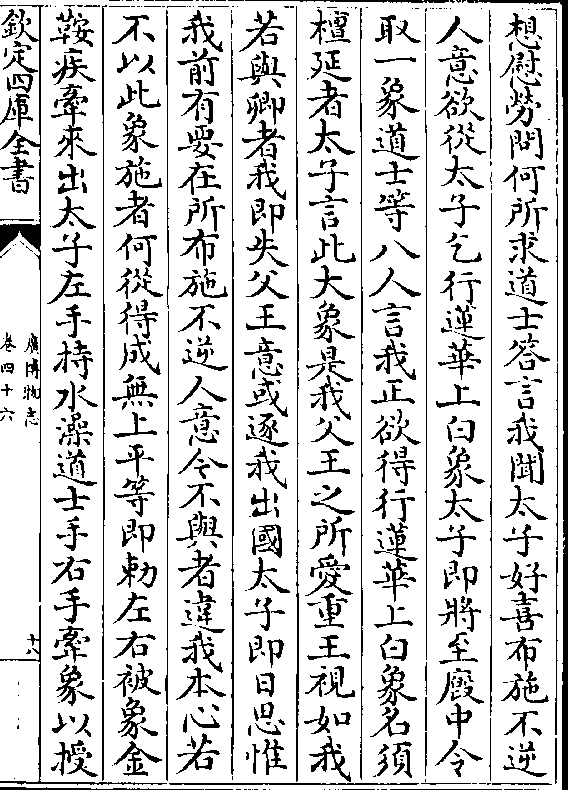 想慰勞問何所求道士答言我聞太子好喜布施不逆
人意欲從太子乞行蓮華上白象太子即將至廄中令
取一象道士等八人言我正欲得行蓮華上白象名須
檀延者太子言此大象是我父王之所愛重王視如我
若與卿者我即失父王意或逐我出國太子即日思惟
我前有要在所布施不逆人意今不與者違我本心若
不以此象施者何從得成無上平等即勅左右被象金
鞍疾牽來出太子左手持水澡道士手右手牽象以授
欽定四庫全書
廣博物志
卷四十六
十八